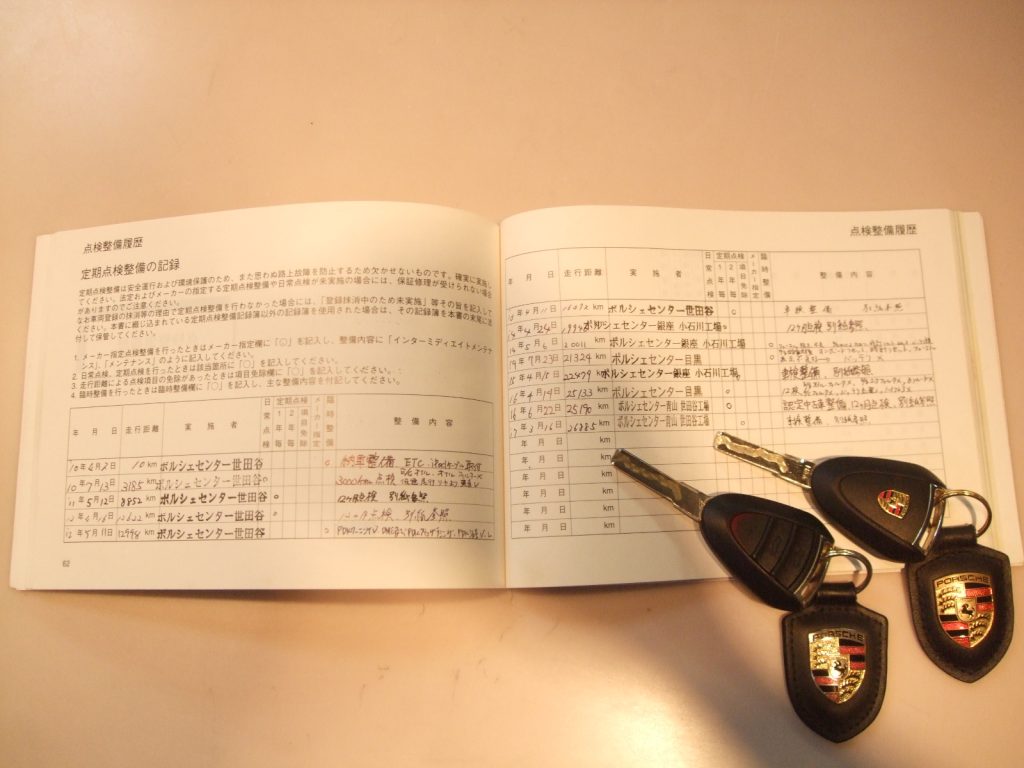 点検整備履歴
定期点検整備の記録
定期点検整備は安全運行および環境保護のため、また思わぬ路上故障を防止するため欠かせないものです。確実に実施し
てください。法定およびメーカーの指定する定期点検整備や日常点検が未実施の場合には、保証修理が受けられない場合
がありますのでご注意ください。
なお車両登録の抹消等の理由で定期点検整備を行わなかった場合には、「登録抹消中のため未実施」等その旨を記入して
ください。本書に綴じ込まれている定期点検整備記録簿以外の記録簿を使用された場合は、その記録簿を本書の末尾に添
付して保管してください。
1. メーカー指定点検整備を行ったときはメーカー指定欄に「○」を記入し、整備内容に「インターミディエイトメンテナ
ンス」、「メンテナンス」のように記入してください。
2. 日常点検、定期点検を行ったときは該当箇所に「○」を記入してください。
3. 走行距離による点検項目の免除があったときは項目免除欄に「○」を記入してください。
4. 臨時整備を行ったときは臨時整備欄に「○」を記入し、主な整備内容を付記してください。
年 月 日 走行距離 実施者 日常点検 定期点検 1年毎 2年毎 項目免除 メーカー指定 臨時整備 整備内容
10年6月2日 10km ポルシェセンター世田谷 ○ 納車整備 ETC
10年7月13日 3185km ポルシェセンター世田谷 ○ 3000km点検
11年5月12日 8852km ポルシェセンター世田谷 ○ 12ヶ月点検 別紙参照
12622km ポルシェセンター世田谷 ○ 12ヶ月点検 別紙参照
12年5月11日 12998km ポルシェセンター世田谷 ○
62
点検整備履歴
年 月 日 走行距離 実施者 日常点検 定期点検 1年毎 2年毎 項目免除 メーカー指定 臨時整備 整備内容
13年4月11日 km ポルシェセンター世田谷 ○ 車検整備
14年4月24日 km ポルシェセンター銀座 小石川工場 ○ 12ヶ月点検 別紙参照
14年5月6日 20011km ポルシェセンター銀座 小石川工場 ○
14年7月23日 21324km ポルシェセンター目黒 ○
15年4月15日 22479km ポルシェセンター銀座 小石川工場 ○ 車検整備 別紙参照
16年4月14日 25133km ポルシェセンター目黒 ○
16年6月22日 25190km ポルシェセンター青山 世田谷工場 ○ 認定中古車整備 12ヶ月点検 別紙参照
17年3月16日 26885km ポルシェセンター青山 世田谷工場 ○ 車検整備 別紙参照
年 月 日 km
年 月 日 km
年 月 日 km
年 月 日 km
年 月 日 km
PORSCHE
PORSCHE